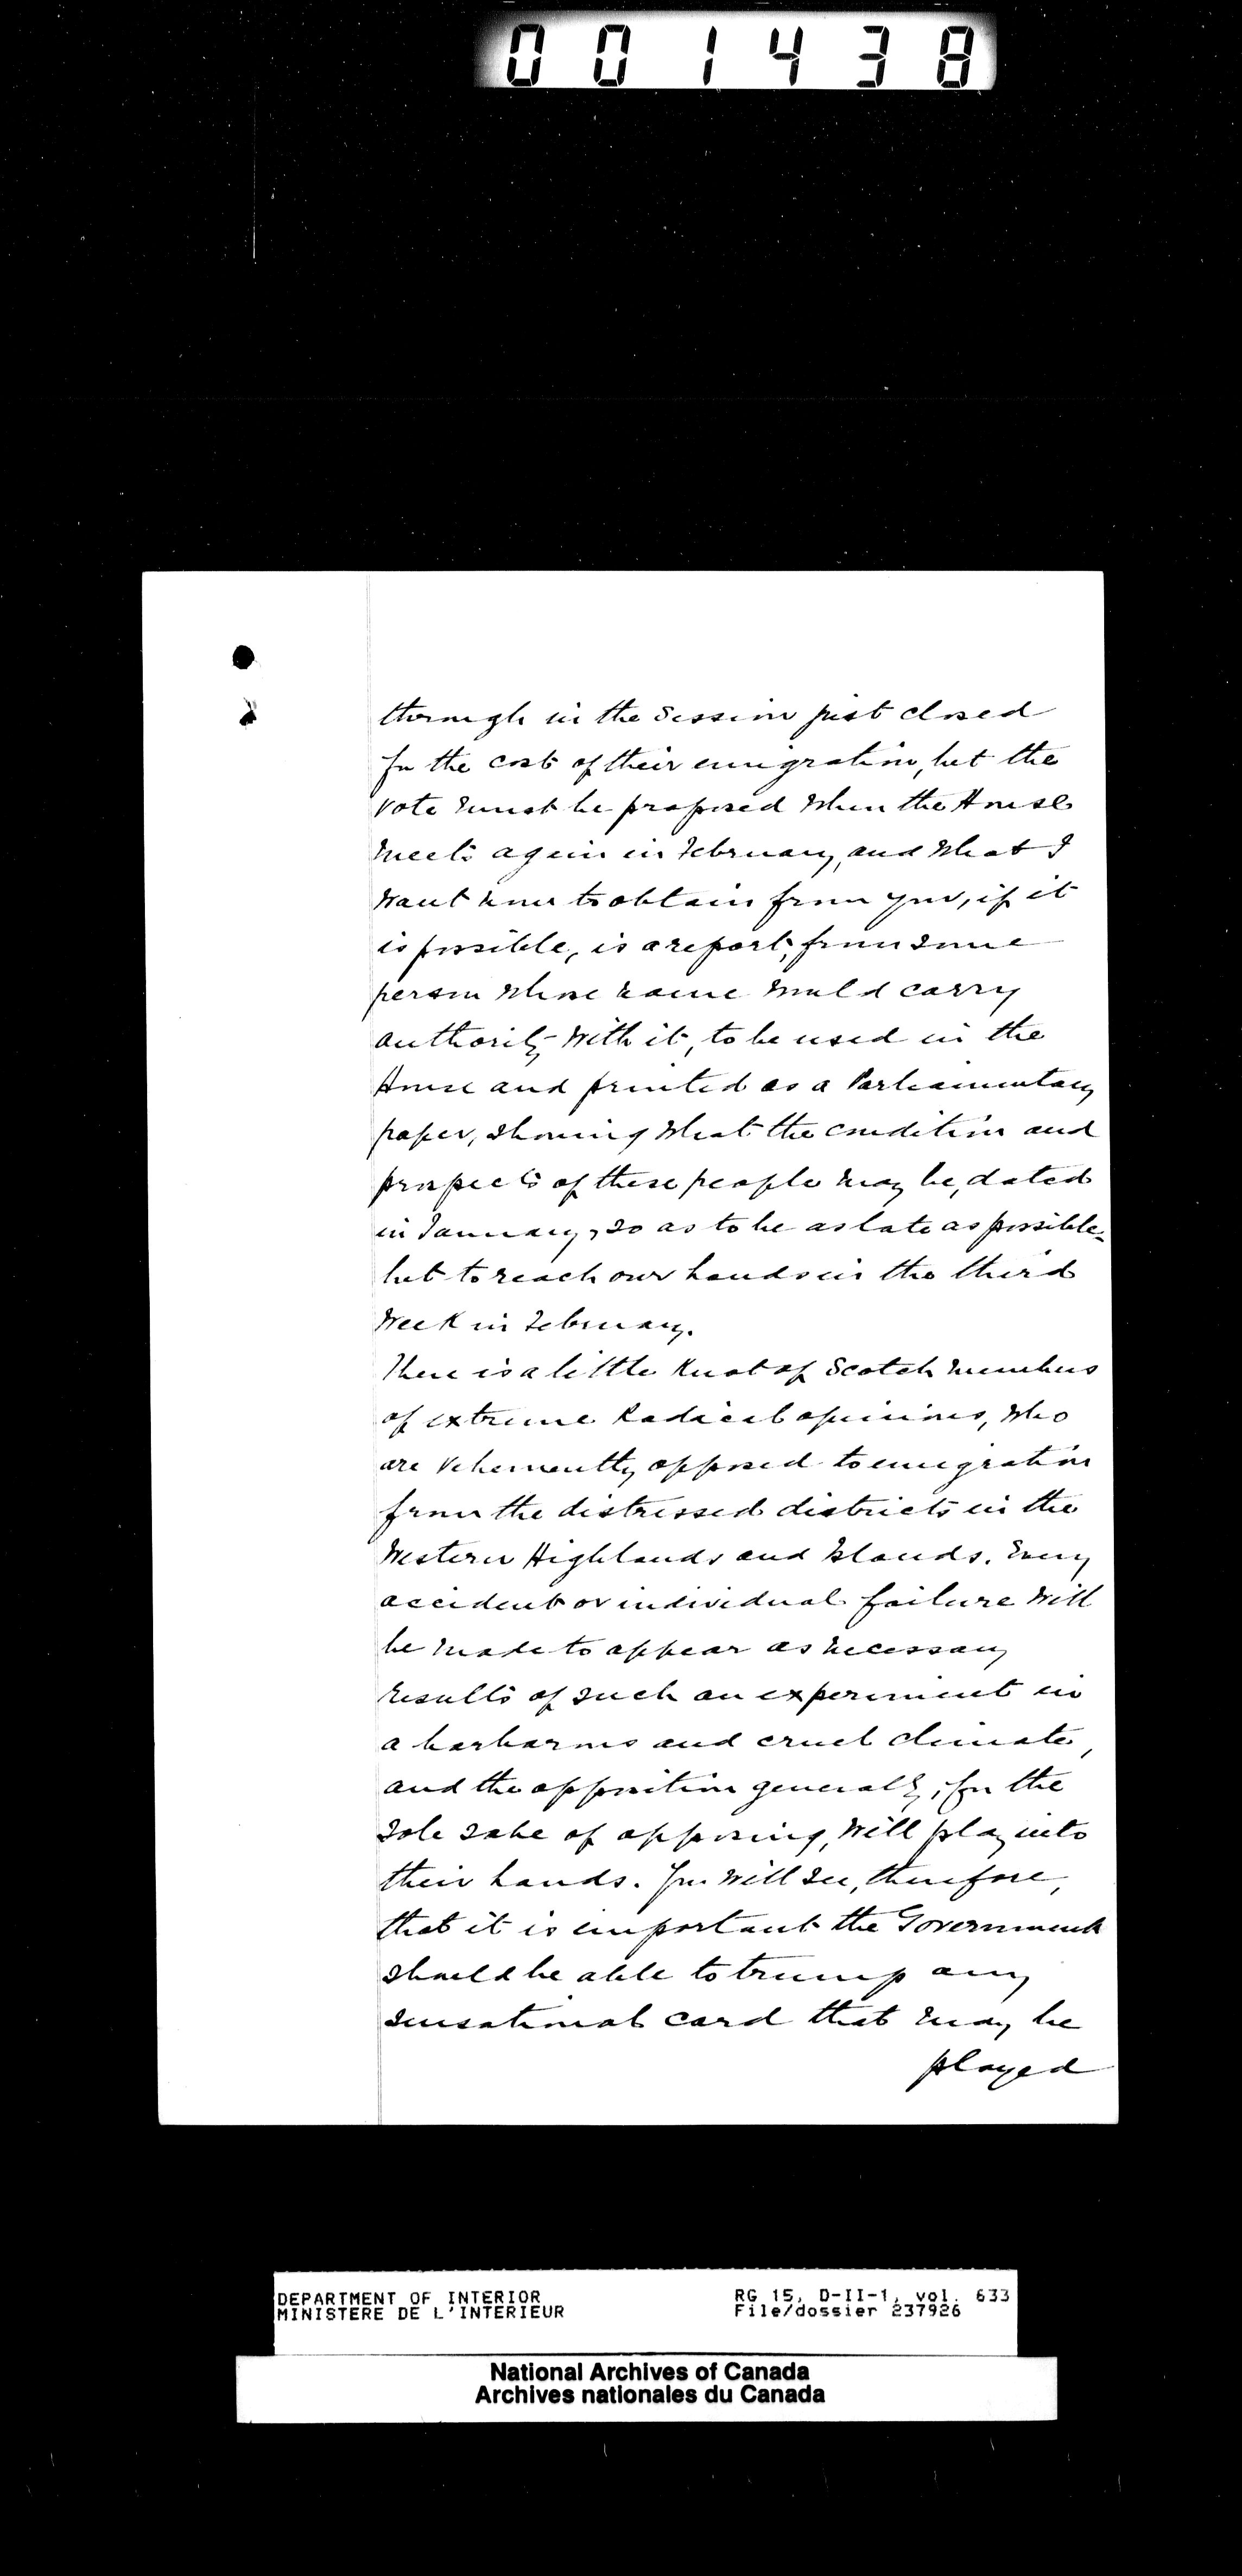 001438
through in the Session just closed
for the cost of their emigration, but the
vote must be proposed when the House
meets again in February, and what I
want now to obtain from you, if it
is possible, is a report, from some
person whose name would carry
authority with it, to be used in the
House and printed as a Parliamentary
paper, showing what the condition and
prospects of these people may be, dated
in January, so as to be as late as possible-
but to reach our hands in the third
week in February.
There is a little knot of Scotch members
of extreme Radical opinions, who
are vehemently opposed to emigration
from the distressed districts in the
Western Highlands and Islands. Every
accident or individual failure will
be made to appear as necessary
results of such an experiment in
a barbarous and cruel climate,
and the opposition generally, for the
sole sake of opposing, will play into
their hands. You will see, therefore,
that it is important the Government
should be able to trump any
sensational card that may be
played
DEPARTMENT OF INTERIOR RG 15, D-II-1, vol. 633
MINISTERE DE L'INTERIEUR File/dossier 237926
National Archives of Canada
Archives nationales du Canada